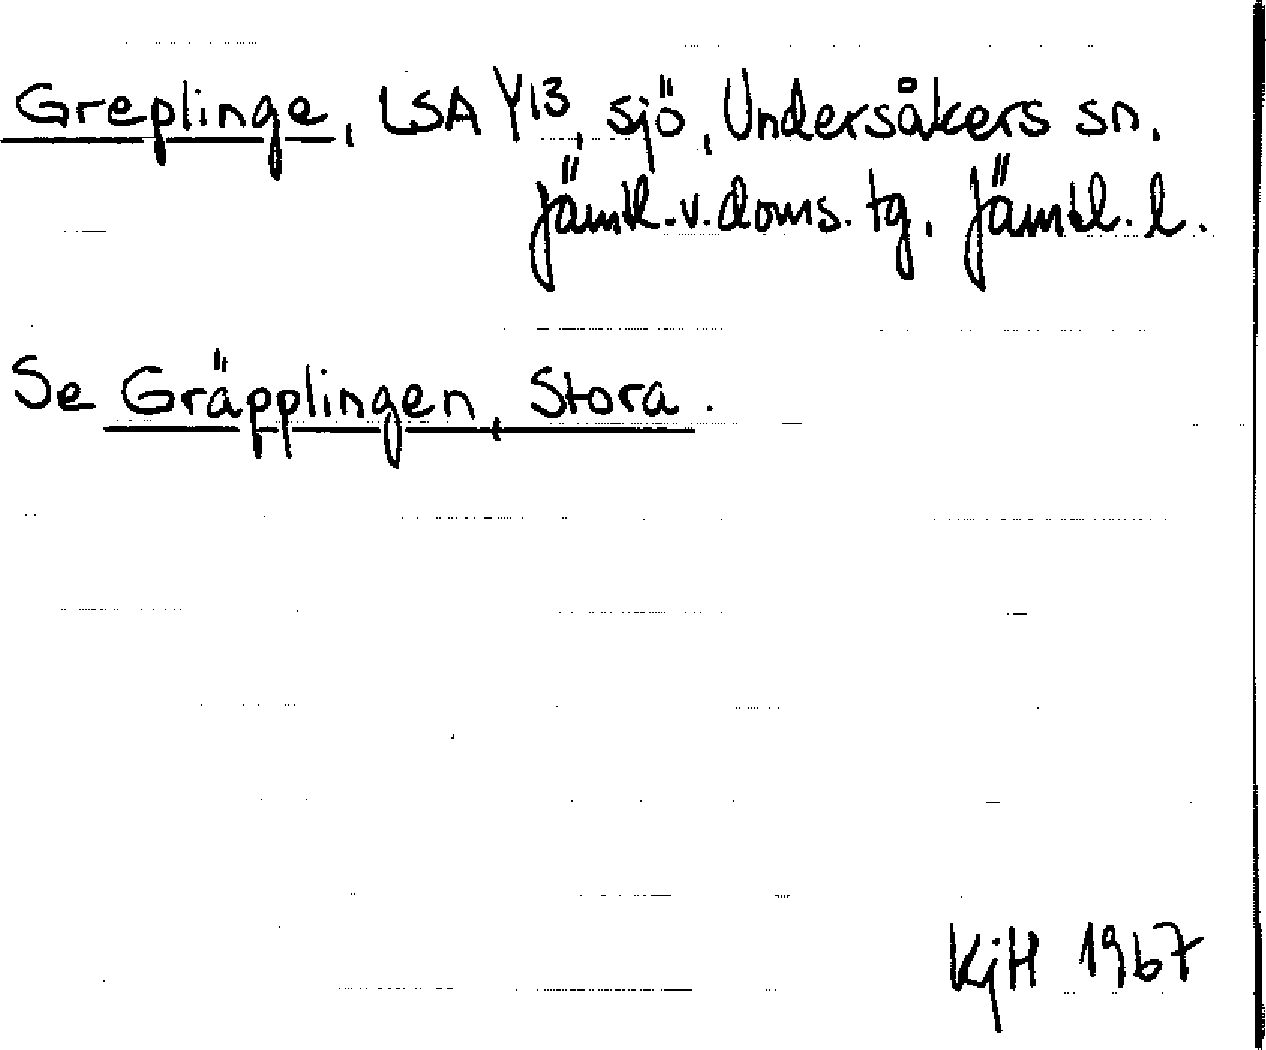 Greplinge, LSA Y13, sjö, Undersåkers sn.
Jämtl. v. doms. tg. Jämtl. l.
Se Gräpplingen, Stora.
KjH 1967